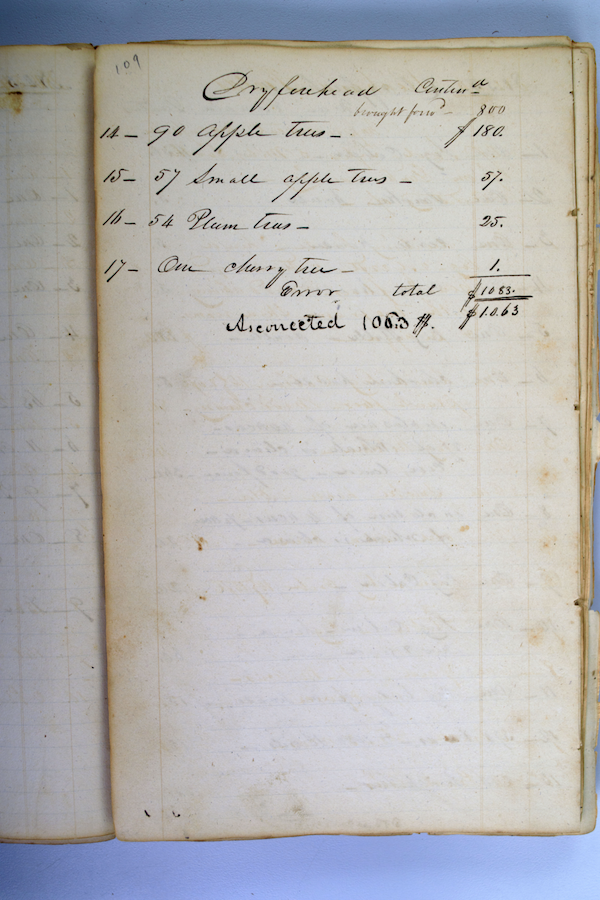 109
Dryforehead Contind
brought forwd - 800
14 - 90 apple trees - $180.
15 - 57 Small apple trees - 57.
16 - 54 Plum trees - 25.
17 - One cherry tree - 1.
Error total $1083.
$1.063
As corrected 1063 $.